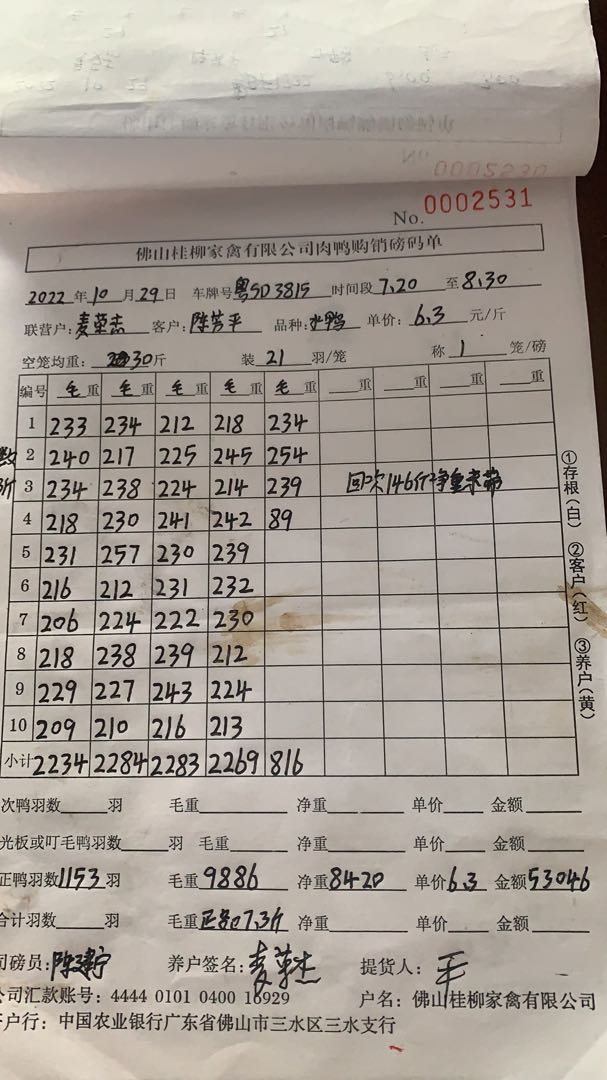 No. 0002531
佛山桂柳家禽有限公司肉鸭购销磅码单
2022年10月29日 车牌号粤SD3815 时间段7.20至8.30
联营户:麦荣志 客户:陈芳平 品种:水鸭 单价:6.3元/斤
空笼均重:30斤 装21羽/笼 称1笼/磅
编号 毛重 毛重 毛重 毛重 毛重 重 重 重 重
1 233 234 212 218 234
2 240 217 225 245 254
3 234 238 224 214 239 回次146斤净重未带
4 218 230 241 242 89
5 231 257 230 239
6 216 212 231 232
7 206 224 222 230
8 218 238 239 212
9 229 227 243 224
10 209 210 216 213
小计 2234 2284 2283 2269 816
①存根(白) ②客户(红) ③养户(黄)
次鸭羽数 羽 毛重 净重 单价 金额
光板或叮毛鸭羽数 羽 毛重 净重 单价 金额
正鸭羽数1153羽 毛重9886 净重8420 单价6.3 金额53046
合计羽数 羽 毛重 7.3斤 净重 单价 金额
司磅员: 养户签名: 提货人:
公司汇款账号:4444 0101 0400 16929 户名:佛山桂柳家禽有限公司
户行:中国农业银行广东省佛山市三水区三水支行